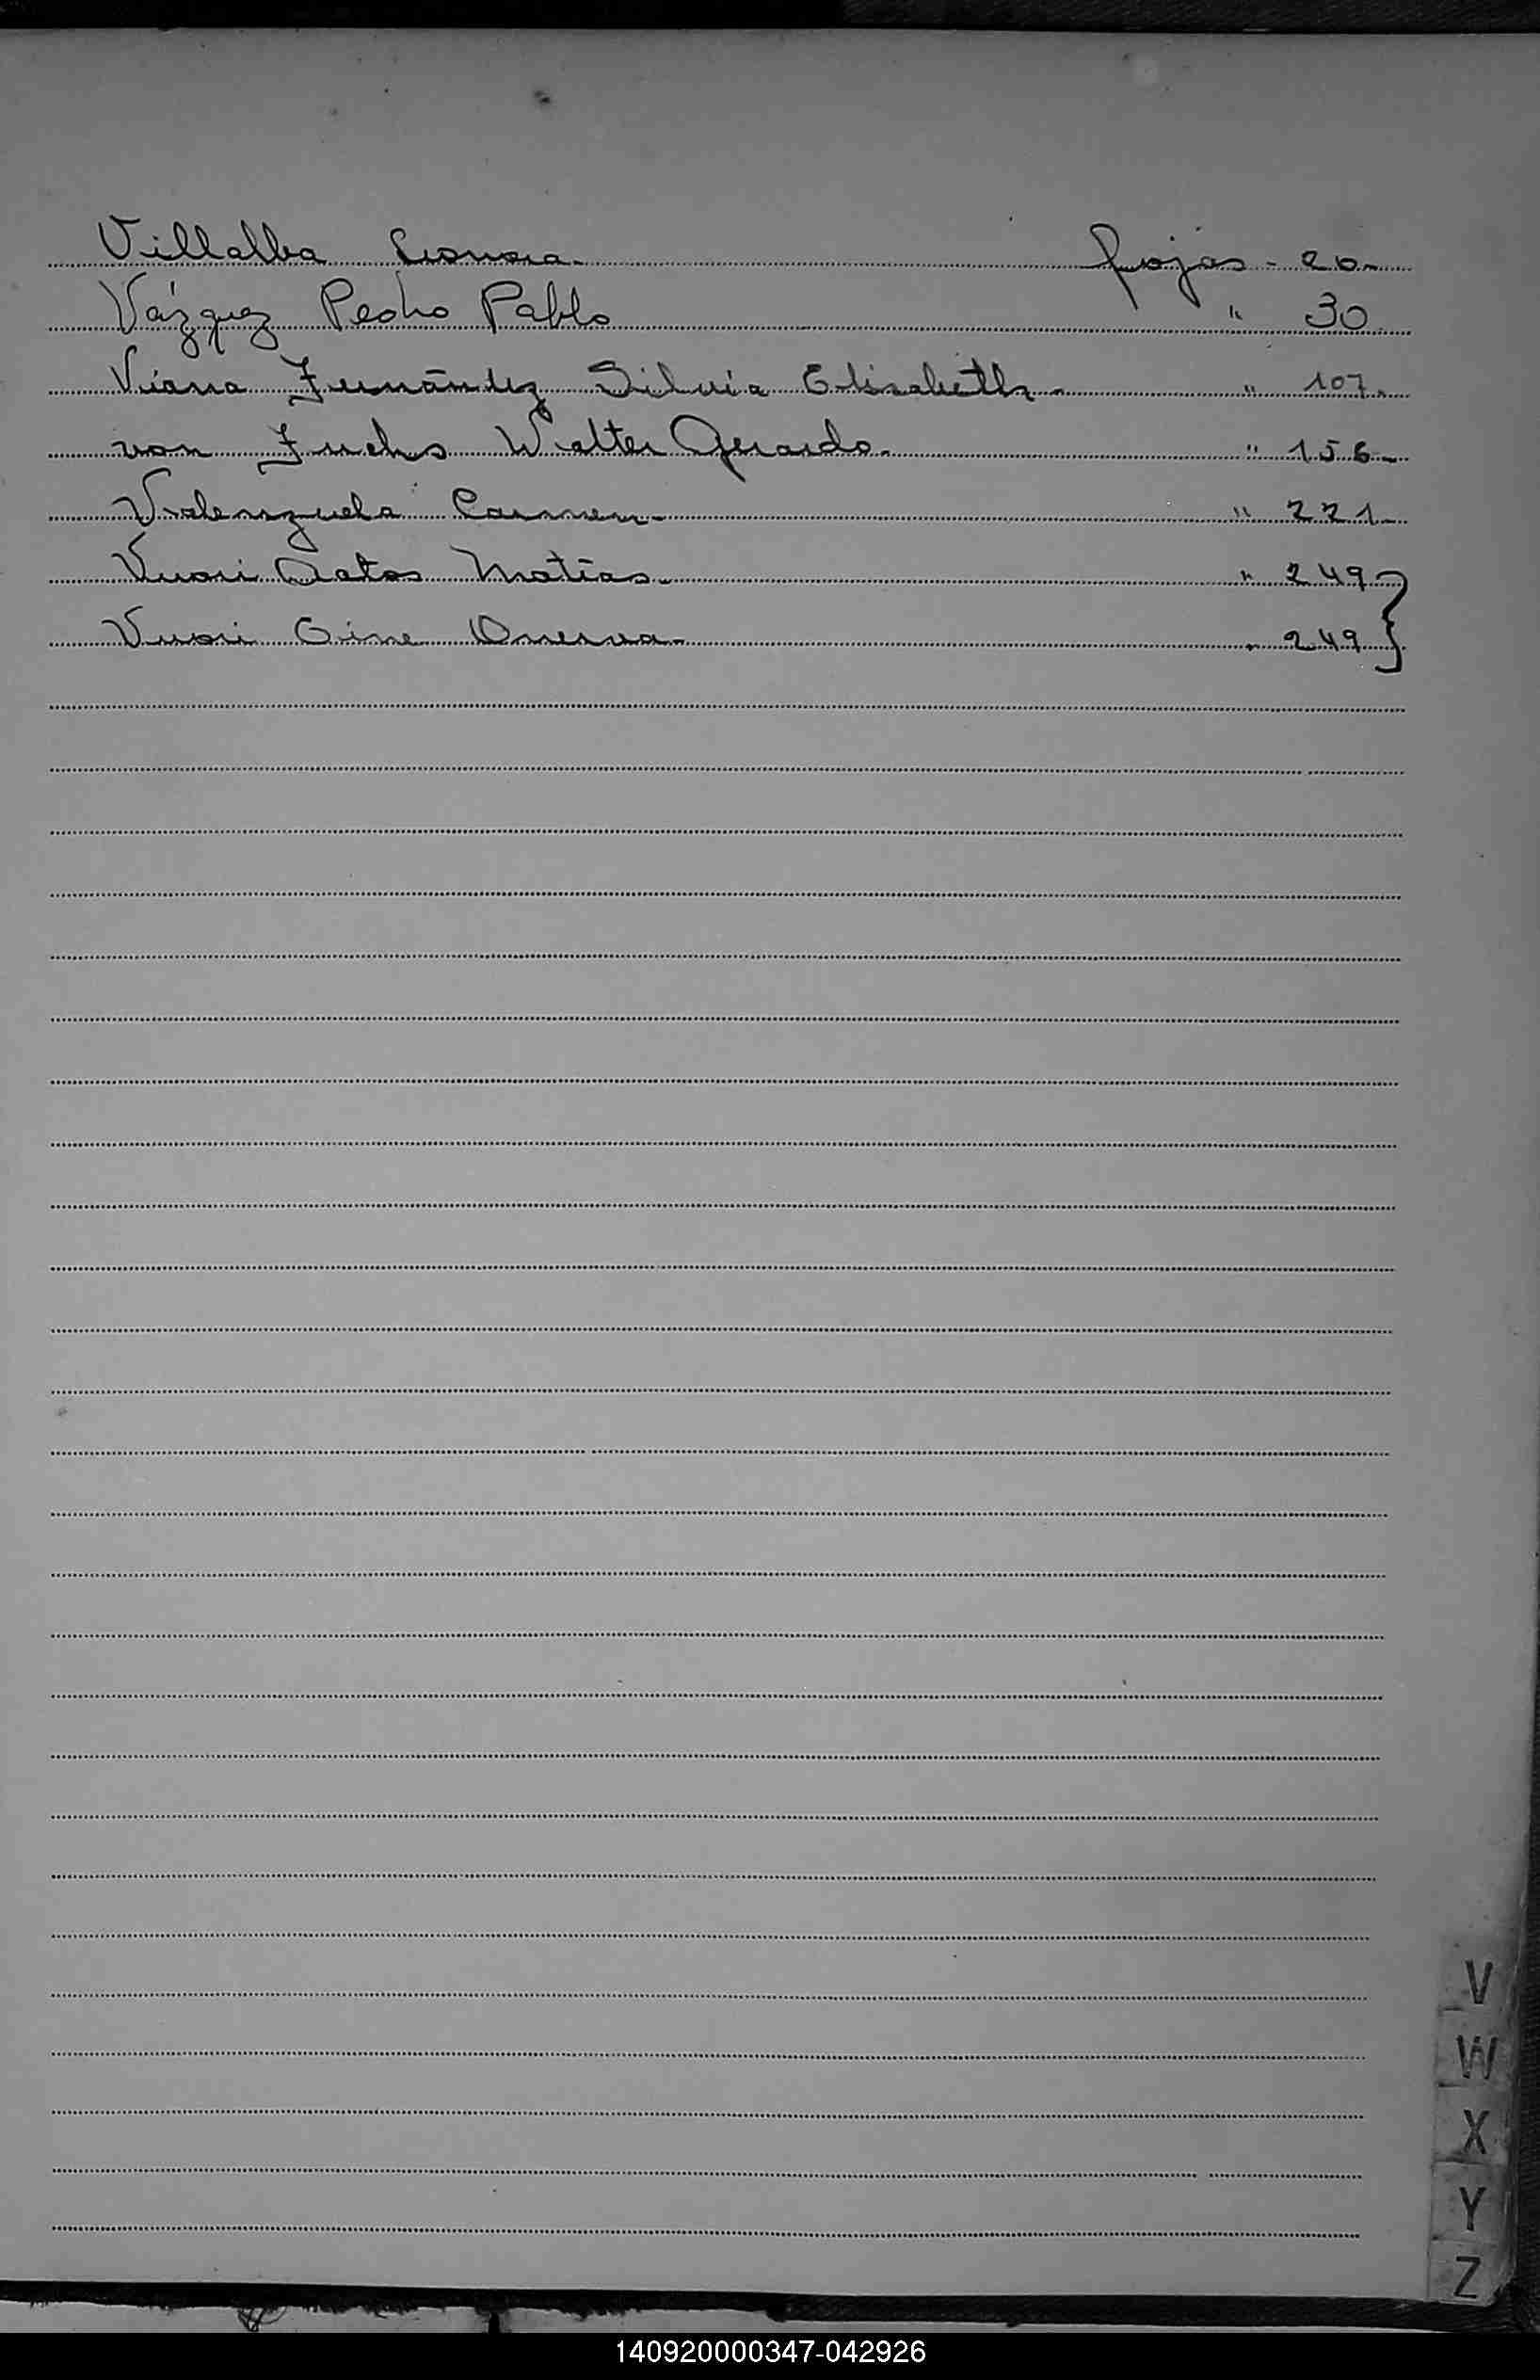 Villalba Leonora - fojas - 20 -
Vázquez Pedro Pablo " 30
Viana Fernández Silvia Elisabeth - " 107 -
von Fuchs Walter Gerardo - " 156 -
Valenzuela Carmen - " 221 -
Vuori Aatos Matias - " 249 }
Vuori Eine Onerva - " 249 }
V
W
X
Y
Z
140920000347-042926